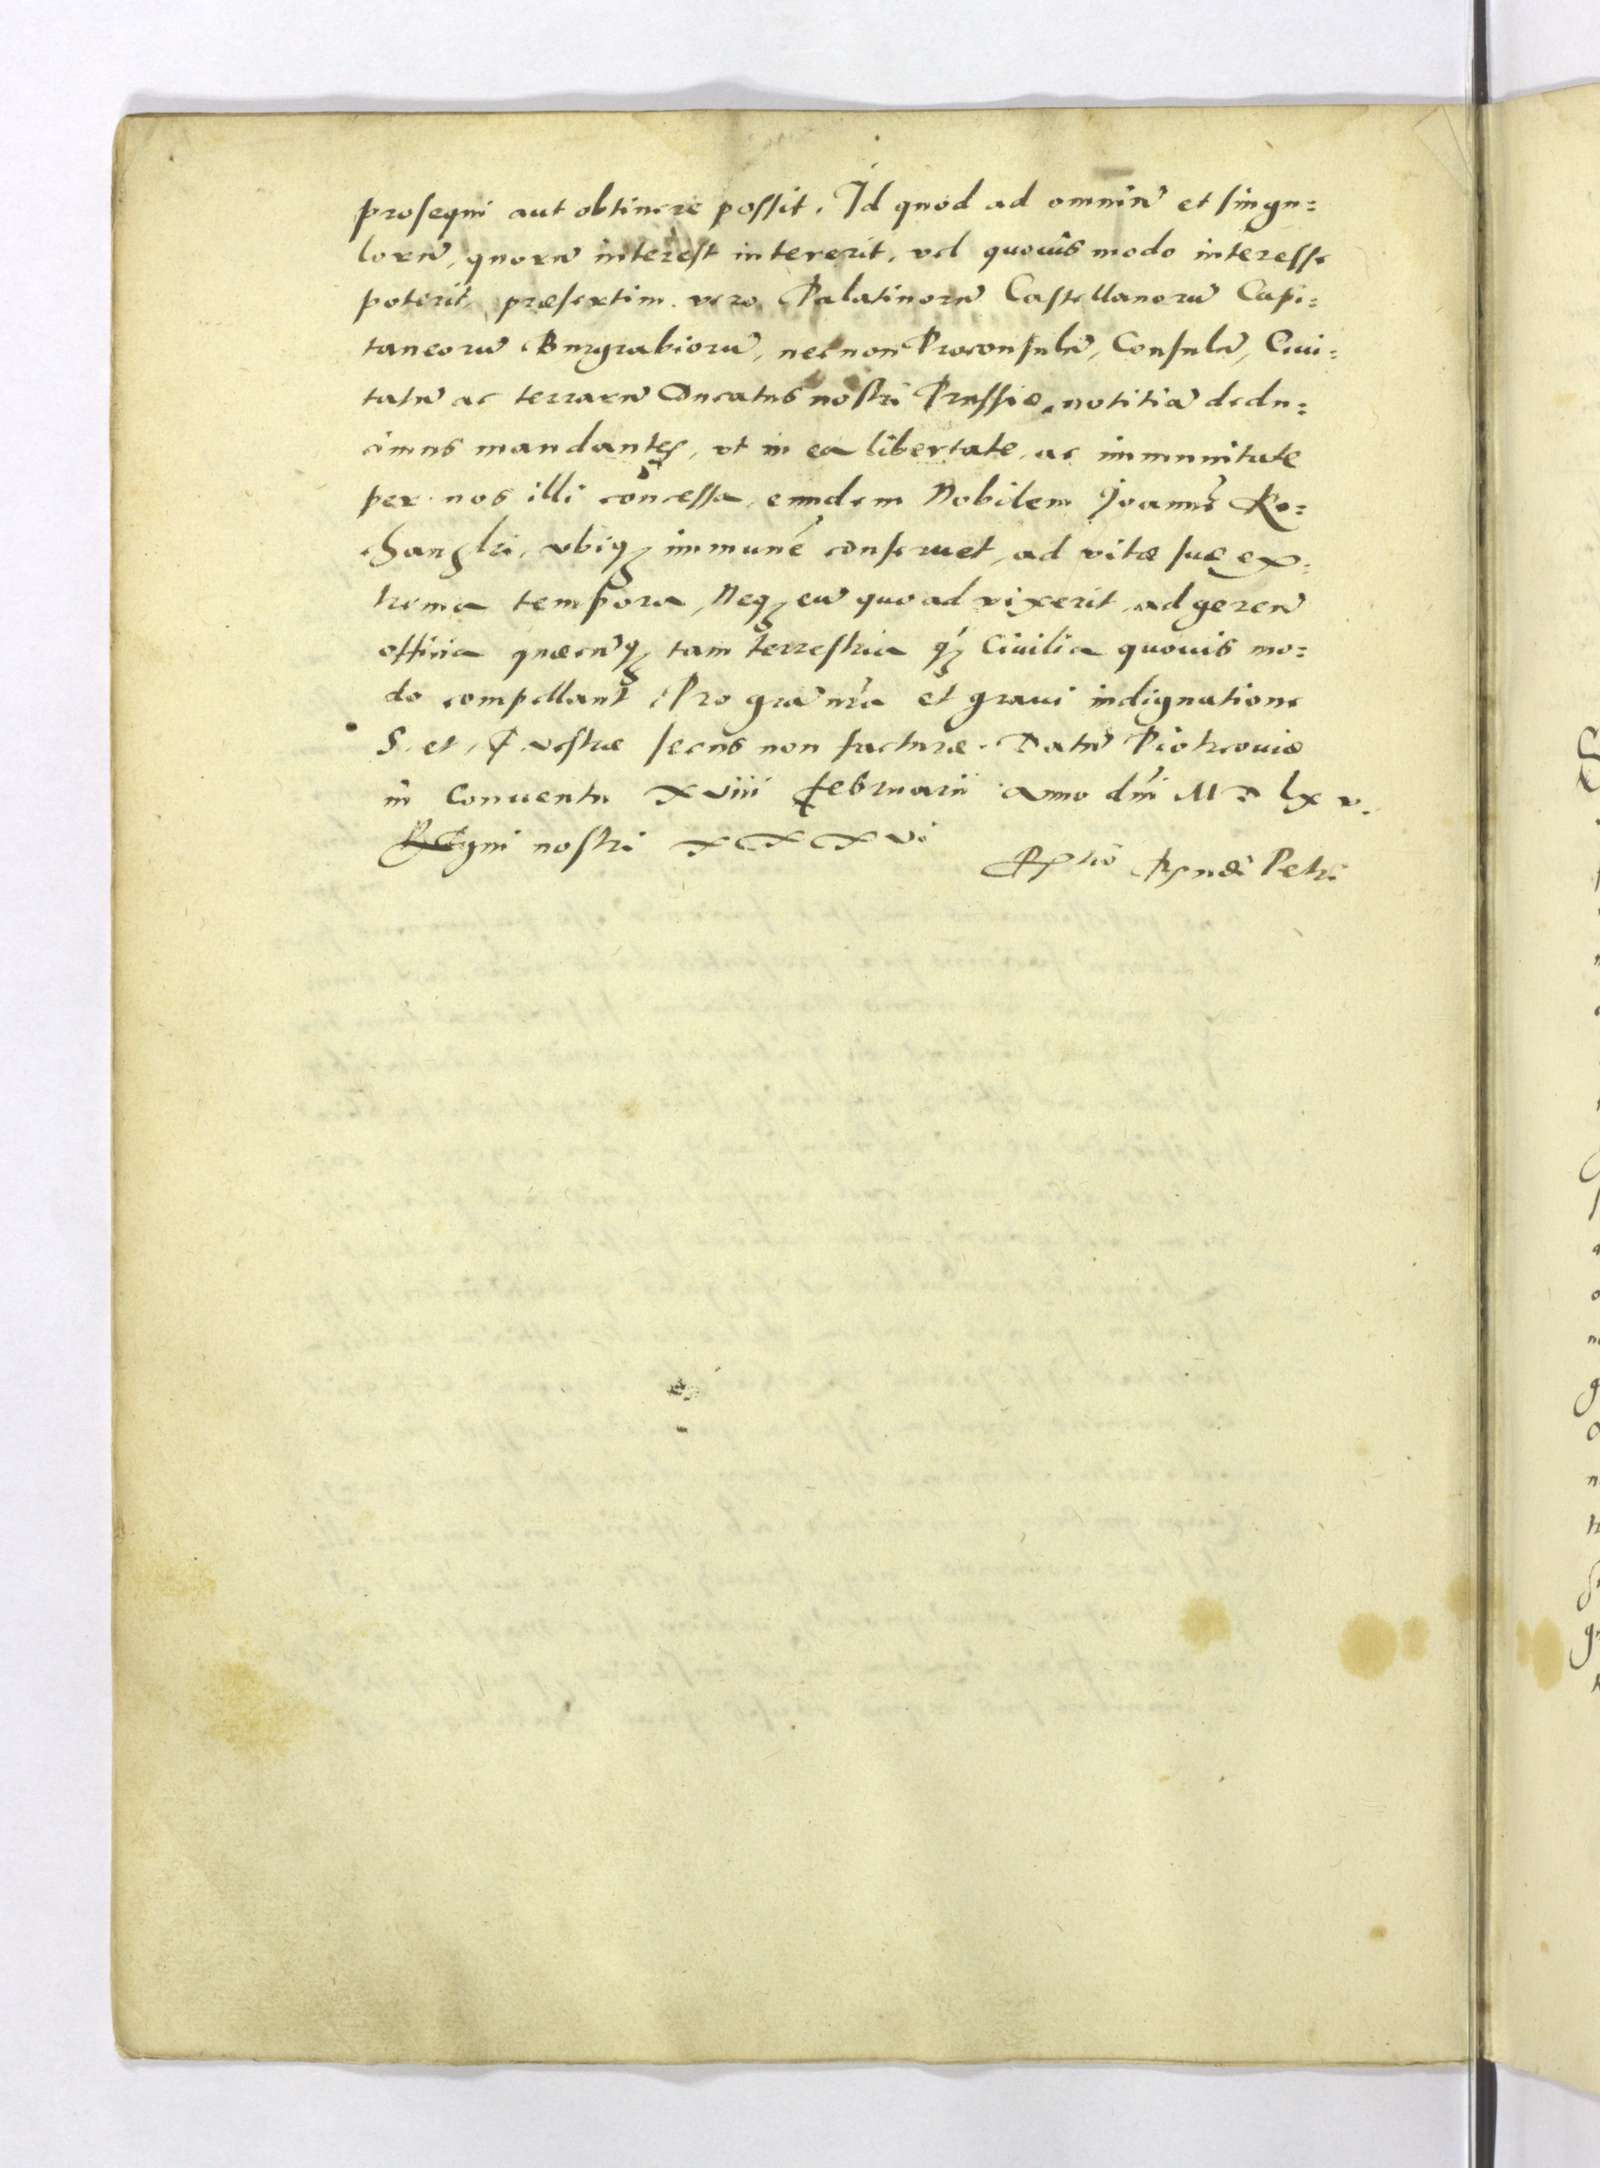 prosequi aut obtinere possit. Id quod ad omniũ et singu=
lorũ, quorũ interest intererit, vel quovis modo interesse
poterit, præsertim vero Palatinorũ Castellanorũ Capi=
taneorũ Burgrabiorũ, nec non Proconsulũ, Consulũ, Civi=
tatũ ac terrarũ Ducatus nostri Prussiæ, notitiã dedu=
cimus mandantes, vt in ea libertate, ac immunitate
per nos illi concessa, eundem Nobilem Joannẽ Ko=
vbiq immunẽ conservet, ad vitæ suæ ex=
trema tempora, Neq eũ quo ad vixerit, ad gerenda
officia quæcũq tam terrestria q̃ Civilia quovis mo=
do compellant Pro gratia nr̃a et gravi indignatione
S. et F. vestræ secus non facturæ. Datũ Piotrcoviæ
in Conventu xviii Februarii Anno dñi M D lx v.
Regni nostri xxxvi
Petri